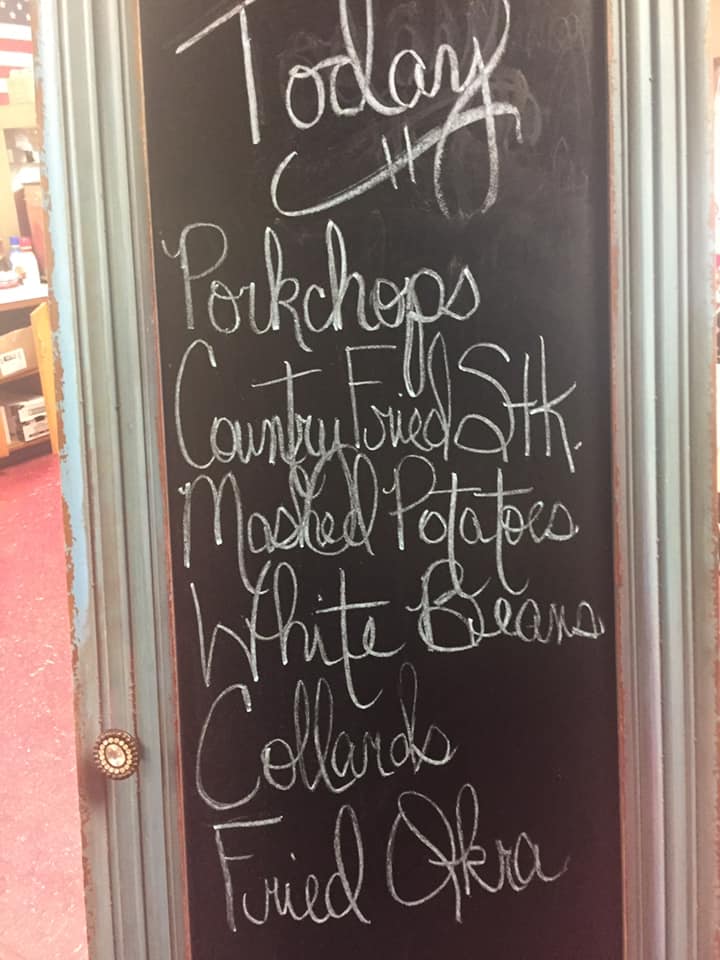 Today
Porkchops
Country Fried Stk.
Mashed Potatoes
White Beans
Collards
Fried Okra